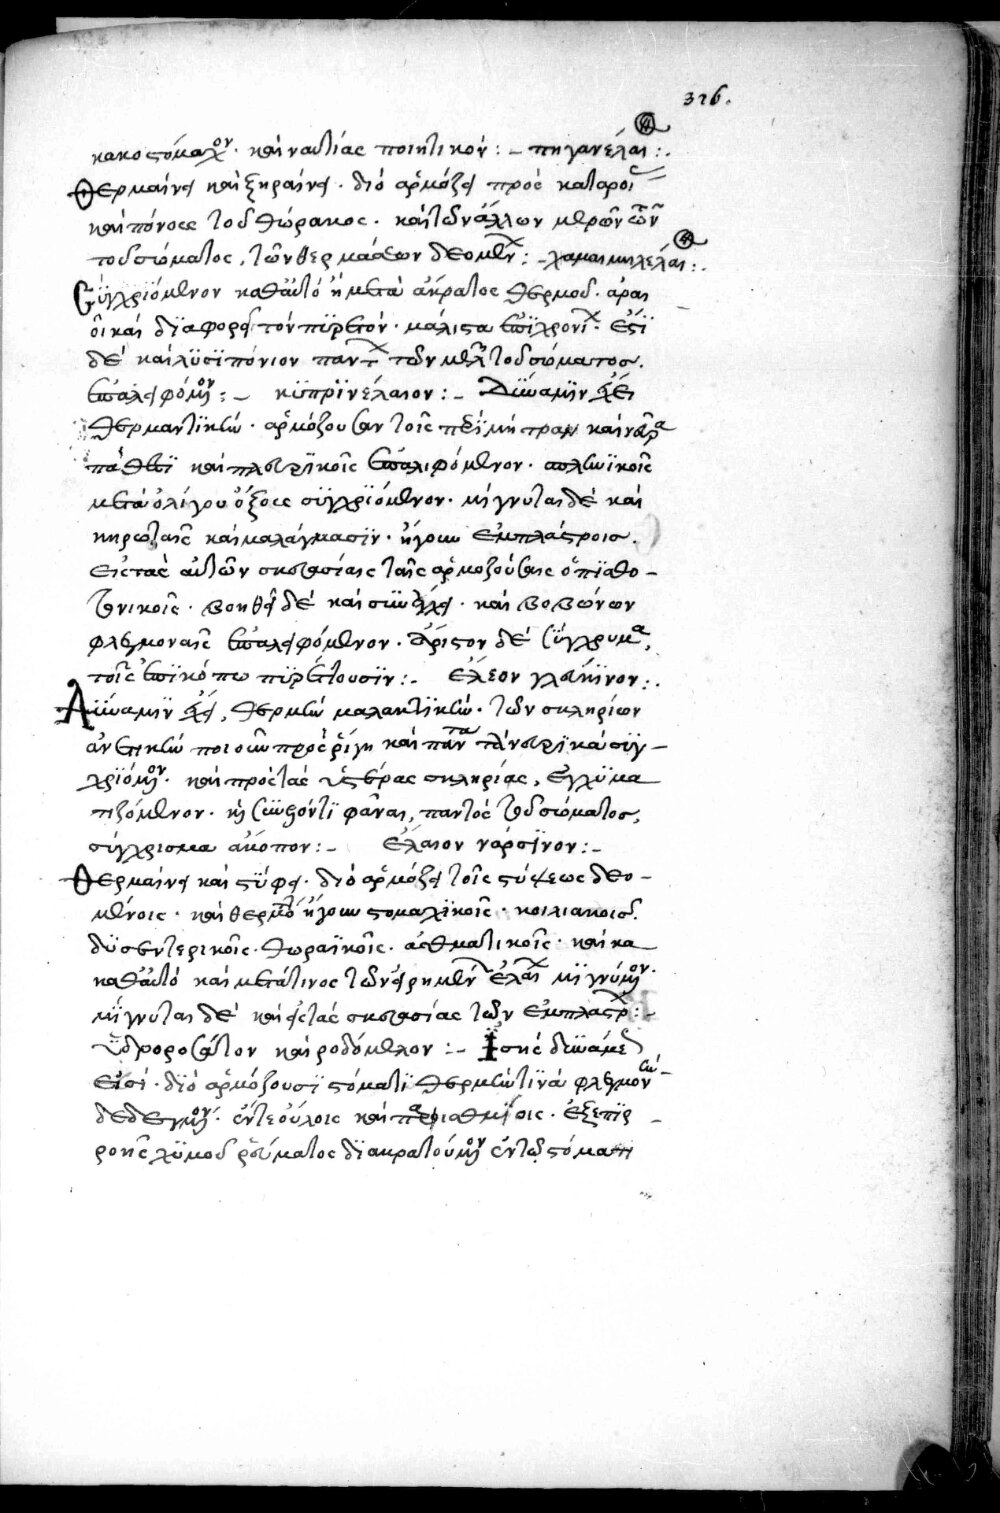 326.
κακοστόμαχον· καὶ ναυτίας ποιητικόν:– πηγανέλαι:·
Θερμαίνει καὶ ξηραίνει· διὸ ἁρμόζει πρὸς κατάροι
καὶ πόνους τοῦ θώρακος· καὶ τῶν ἄλλων μερῶν
τοῦ σώματος, τῶν θερμάσεων δεομέν:– χαμαιμηλέλαι:·
Συγχριόμενον καθ' αὑτὸ ἢ μετὰ ἀκράτος θερμοῦ·
οἳ καὶ διαφορεῖ τὸν πϋρετόν· μάλιστα ἐπϊχρονί· ἐστῒ
δὲ καὶ λϋσϊπόνιον παντ τῶν μελ τοῦ σώματος.
ἐπαλειφόμενον:– κϋπρϊνέλαιον:– Δΰναμϊν ἔχει
θερμαντϊκὴν· ἁρμόζουσαν τοῖς περῒ μήτραν καὶ νεῦρα
πάθεσϊ καὶ πλευρϊτικοῖς ἐπαλιφόμενον·
μετὰ ὀλίγου ὄξους σϋγχρϊόμενον· μίγνυται δὲ καὶ
κηρωταῖς καὶ μαλάγμασϊν· ἤγουν ἐμπλάστροις.
εἰς τὰς αὐτῶν σκευασίαις ταῖς ἁρμοζούσαις ὀπϊσθο–
τονικοῖς· βοηθεῖ δὲ καὶ συνάγχῃ· καὶ βοβώνων
φλεγμοναῖς ἐπαλειφόμενον· ἄριστον δὲ σύγχρυμα,
τοῖς ἐπϊκόπω πϋρέττουσϊν:– ἔλεον γλεύκϊνον:·
Δΰναμϊν ἔχει, θερμὴν μαλακτϊκὴν· τῶν σκληρίων
ἀνετικὴν ποιοῦν πρὸς ῥίγη καὶ πάντα τὰ νευρϊκὰ σϋγ–
χρϊόμενον· καὶ πρὸς τὰς ὑστέρας σκληρίας, ἐγχϋμα
τιζόμενον· παντὸς τοῦ σώματος,
σύγχρισμα ἄκοπον:– ἔλαιον νάρδϊνον:–
Θερμαίνει καὶ στΰφει· διὸ ἁρμόζει τοῖς στύψεως δεο–
μένοις· καὶ θερμὸ ἤγουν στομαχϊκοῖς· κοιλιακοῖς.
δϋσεντερικοῖς· θωραϊκοῖς· ἀσθματικοῖς· καὶ κα
καθ' αὑτὸ καὶ μετά τινος τῶν εἰρημέν ἐλαί μϊγνύμενον·
μΐγνυται δὲ καὶ εἰς τὰς σκευασίας τῶν ἐμπλάστρ:–
Ὑδροροσάτον καὶ ροδόμελον:– Ἴσης δϋνάμε
εἰσί· δϊὸ ἁρμόζουσϊ στόματϊ θερμήν τϊνὰ φλεγμονὴν
δεδεγμένον· ἔν τε οὔλοις καὶ παρισθμΐοις·
ροῆς χϋμοῦ ῥεύματος δϊακρατούμενον ἐν τῶ στόματι